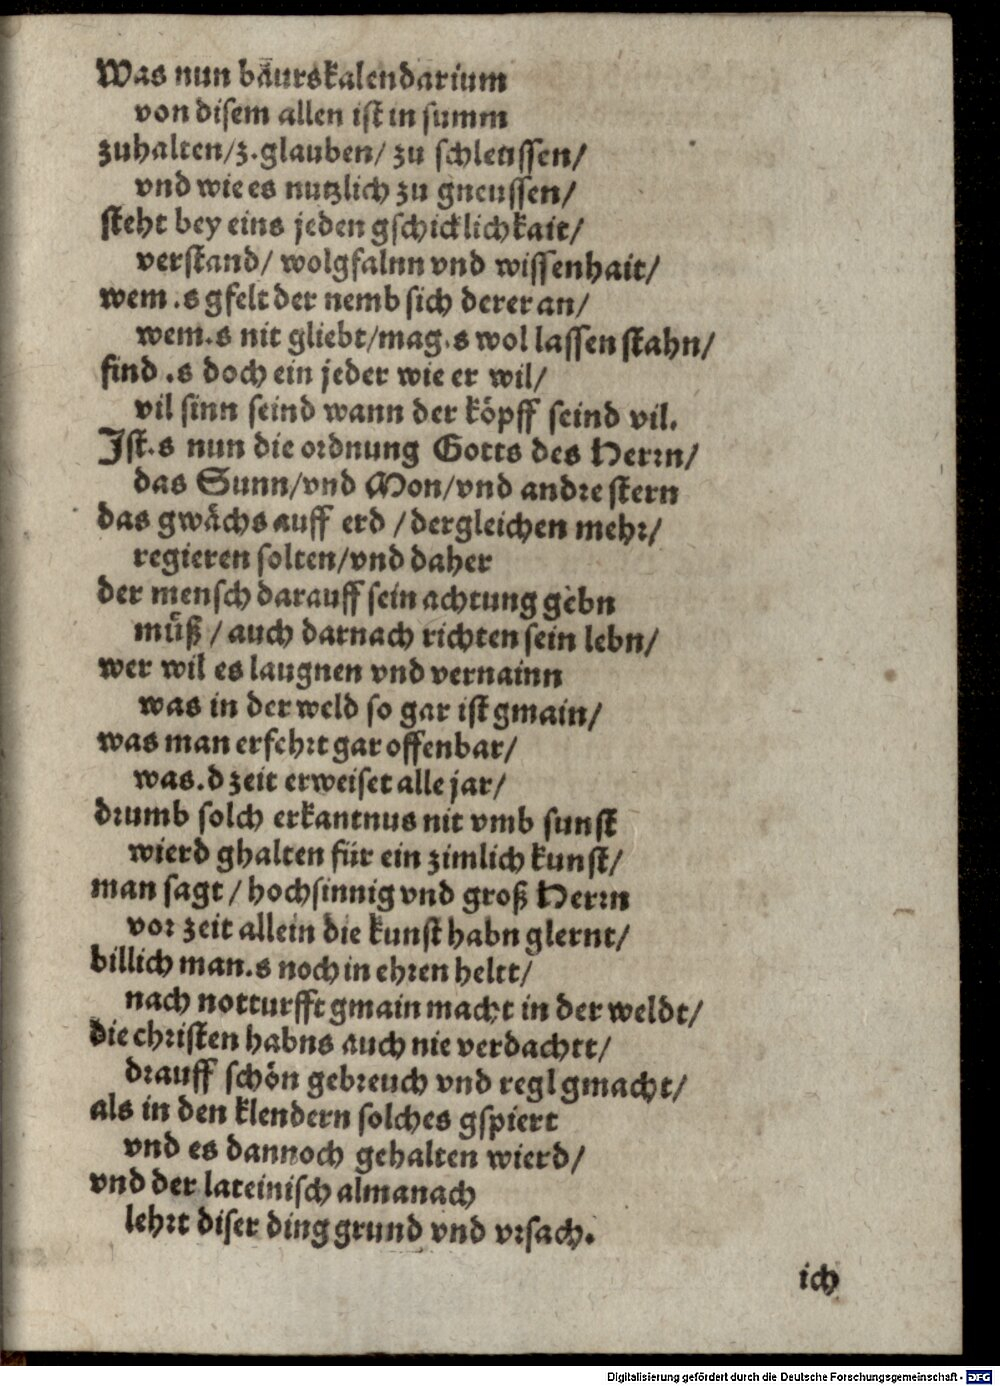 Was nun bäurskalendarium
von disem allen ist in summ
zuhalten/z.glauben/ zu schleussen/
vnd wie es nutzlich zu gneussen/
steht bey eins jeden gschicklichkait/
verstand/ wolgfalnn vnd wissenhait/
wem .s gfelt der nemb sich derer an/
wem.s nit gliebt/mag.s wol lassen stahn/
find .s doch ein jeder wie er wil/
vil sinn seind wann der köpff seind vil.
Ist.s nun die ordnung Gotts des Herrn/
das Sunn/vnd Mon/vnd andre stern
das gwächs auff erd / dergleichen mehr/
regieren solten/vnd daher
der mensch darauff sein achtung gebn
müß / auch darnach richten sein lebn/
wer wil es laugnen vnd vernainn
was in der weld so gar ist gmain/
was man erfehrt gar offenbar/
was.d zeit erweiset alle jar/
drumb solch erkantnus nit vmb sunst
wierd ghalten für ein zimlich kunst/
man sagt / hochsinnig vnd groß Herrn
vor zeit allein die kunst habn glernt/
billich man.s noch in ehren heltt/
nach notturfft gmain macht in der weldt/
die christen habns auch nie verdachtt/
drauff schön gebreuch vnd regl gmacht/
als in den klendern solches gspiert
vnd es dannoch gehalten wierd/
vnd der lateinisch almanach
lehrt diser ding grund vnd vrsach.
ich
Digitalisierung gefördert durch die Deutsche Forschungsgemeinschaft - DFG